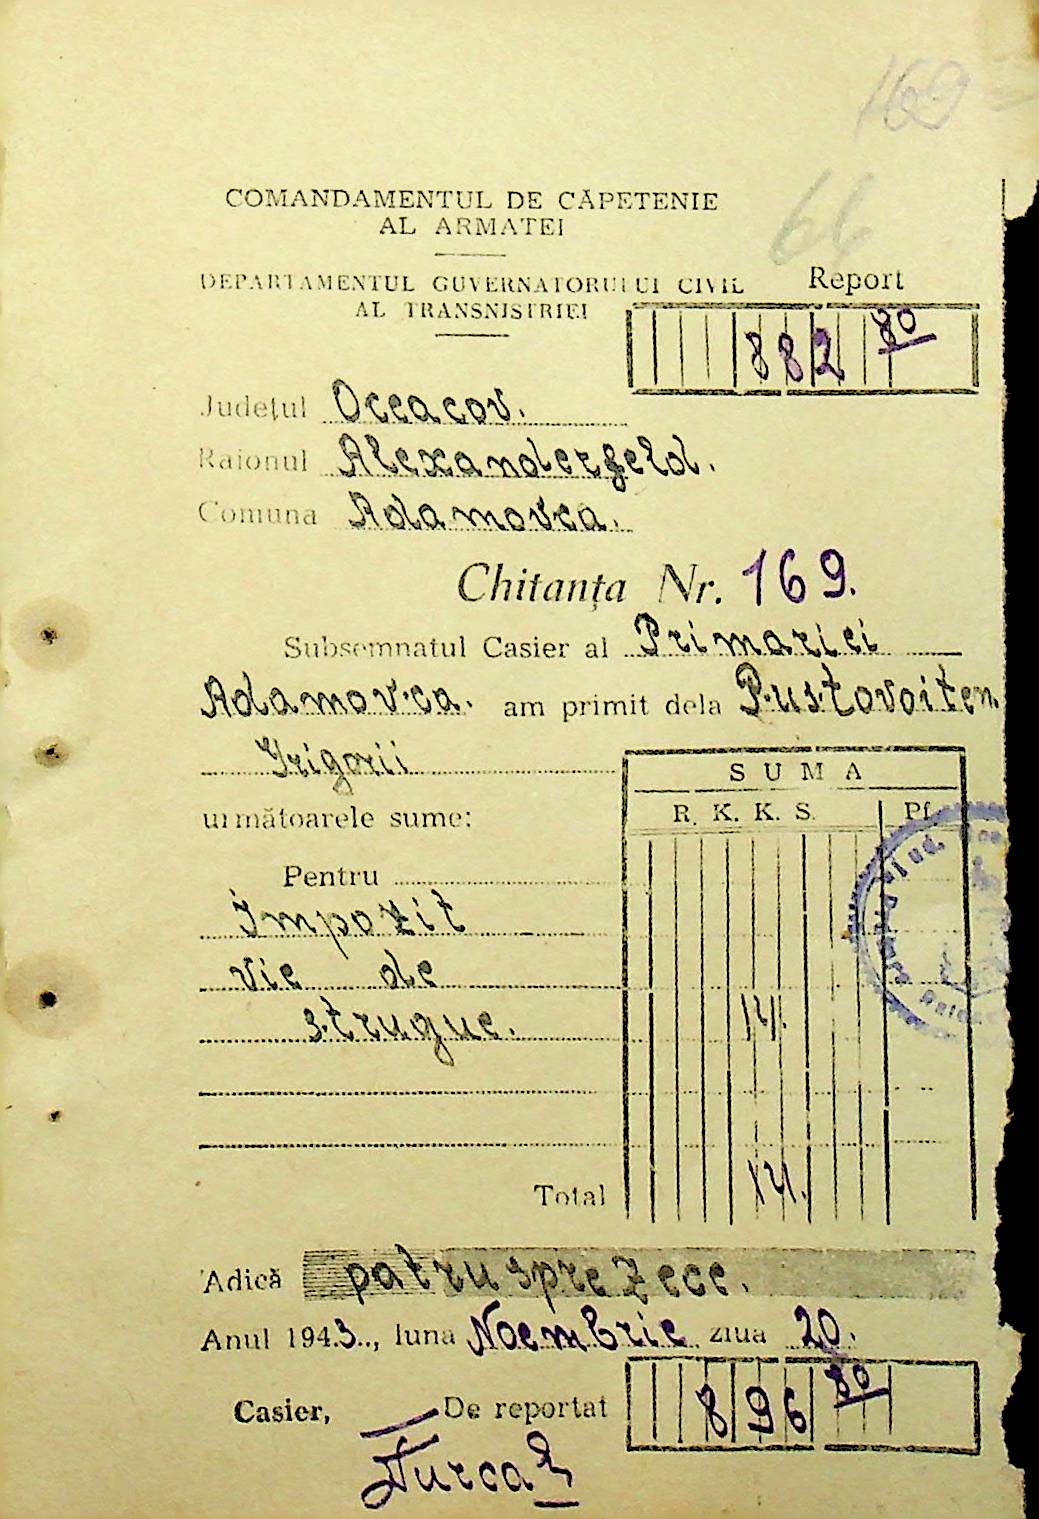 169
66
COMANDAMENTUL DE CĂPETENIE
AL ARMATEI
DEPARTAMENTUL GUVERNATORULUI CIVIL
AL TRANSNISTRIEI
Report
882 80
Judeţul Oceacov.
Raionul Alexanderfeld.
Comuna Adamovca.
Chitanţa Nr. 169.
Subsemnatul Casier al Primariei
Adamovca. am primit dela Pustovoiten
Grigorii
următoarele sume:
SUMA
R. K. K. S. Pf.
Pentru
Impozit
vie de
strugue. 14.
Total 14.
Adică patrusprezece.
Anul 1943., luna Noembrie ziua 20.
Casier, De reportat 896 80